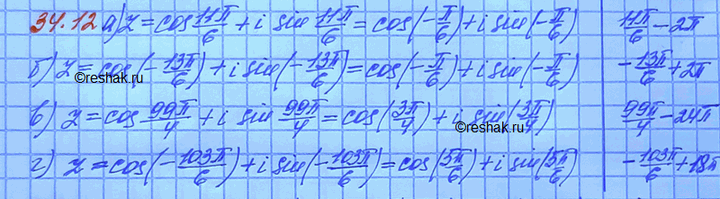 34.12 а) z = cos 11π/6 + i sin 11π/6 = cos(-π/6) + i sin(-π/6) 11π/6 - 2π
б) z = cos(-13π/6) + i sin(-13π/6) = cos(-π/6) + i sin(-π/6) -13π/6 + 2π
©reshak.ru
в) z = cos 99π/4 + i sin 99π/4 = cos(3π/4) + i sin(3π/4) 99π/4 - 24π
©reshak.ru
г) z = cos(-103π/6) + i sin(-103π/6) = cos(5π/6) + i sin(5π/6) -103π/6 + 18π